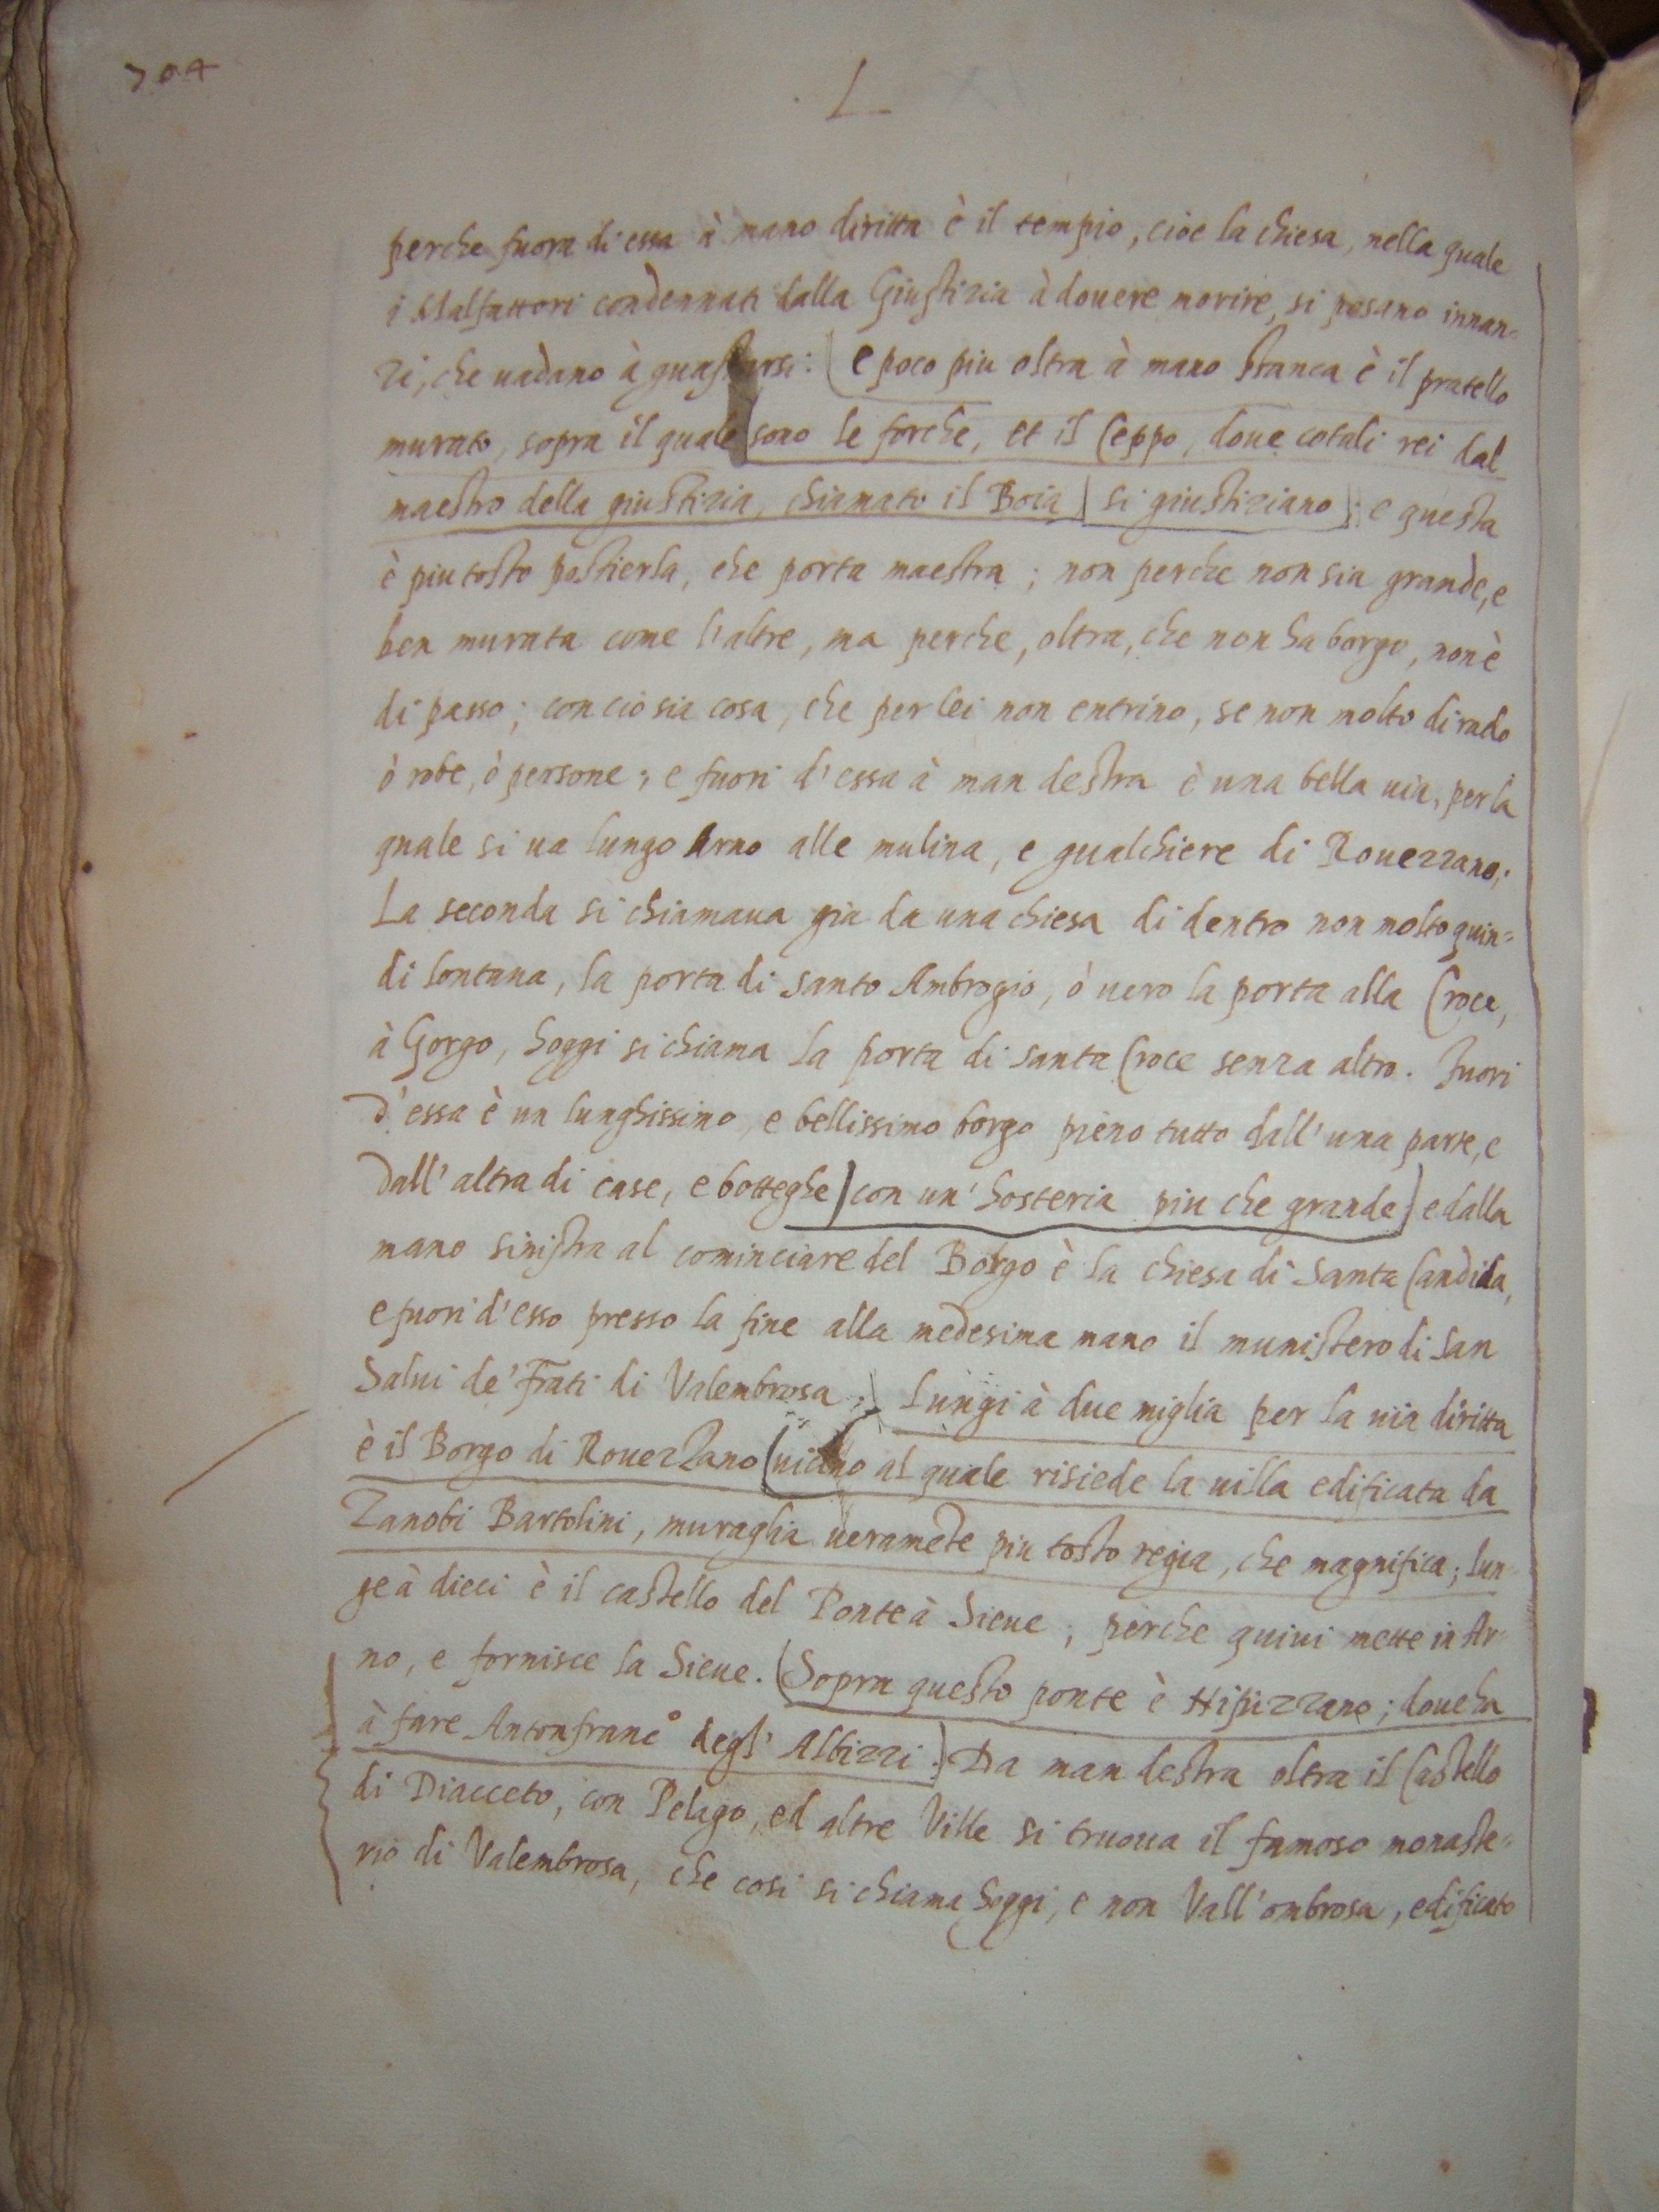 704
L
perche fuora di essa à mano diritta è il tempio, cioe la chiesa, nella quale
i Malfattori condennati dalla Giustizia à douere morire, si posano innan=
zi, che uadano à guastarsi: (e poco piu oltra à mano stanca è il pratello
murato, sopra il quale sono le forche, et il Ceppo, doue cotali rei dal
maestro della giustizia, chiamato il Boia) si giustiziano): e questa
è piu tosto postierla, che porta maestra; non perche non sia grande, e
ben murata come l'altre, ma perche, oltra, che non ha borgo, non è
di passo; conciò sia cosa, che per lei non entrino, se non molto di rado
ò robe, ò persone; e fuori d'essa à man destra è una bella uia, per la
quale si ua lungo Arno alle mulina, e gualchiere di Rouezzano;
La seconda si chiamaua gia da una chiesa di dentro non molto quin=
di lontana, la porta di santo Ambrogio, ò uero la porta alla Croce,
à Gorgo, hoggi si chiama la porta di santa Croce senza altro. Fuori
d'essa è un lunghissimo, e bellissimo borgo pieno tutto dall'una parte, e
dall'altra di case, e botteghe) con un'hosteria piu che grande) e dalla
mano sinistra al cominciare del Borgo è la chiesa di Santa Candida,
e fuori d'esso presso la fine alla medesima mano il munistero di San
Salui de' Frati di Valembrosa;) Lungi à due miglia per la uia diritta
è il Borgo di Rouezzano (uicino al quale risiede la uilla edificata da
Zanobi Bartolini, muraglia ueramete piu tosto regia, che magnifica; lun=
ge à dieci è il castello del Ponte à Sieue; perche quiui mette in Ar=
no, e fornisce la Sieue. (Sopra questo ponte è Nipozzano; doue ha
à fare Antonfranc° degl' Albizzi.) Da man destra oltra il Castello
di Diacceto, con Pelago, ed altre Ville si truoua il famoso monaste=
rio di Valembrosa, che cosi si chiama hoggi, e non Vall'ombrosa, edificato